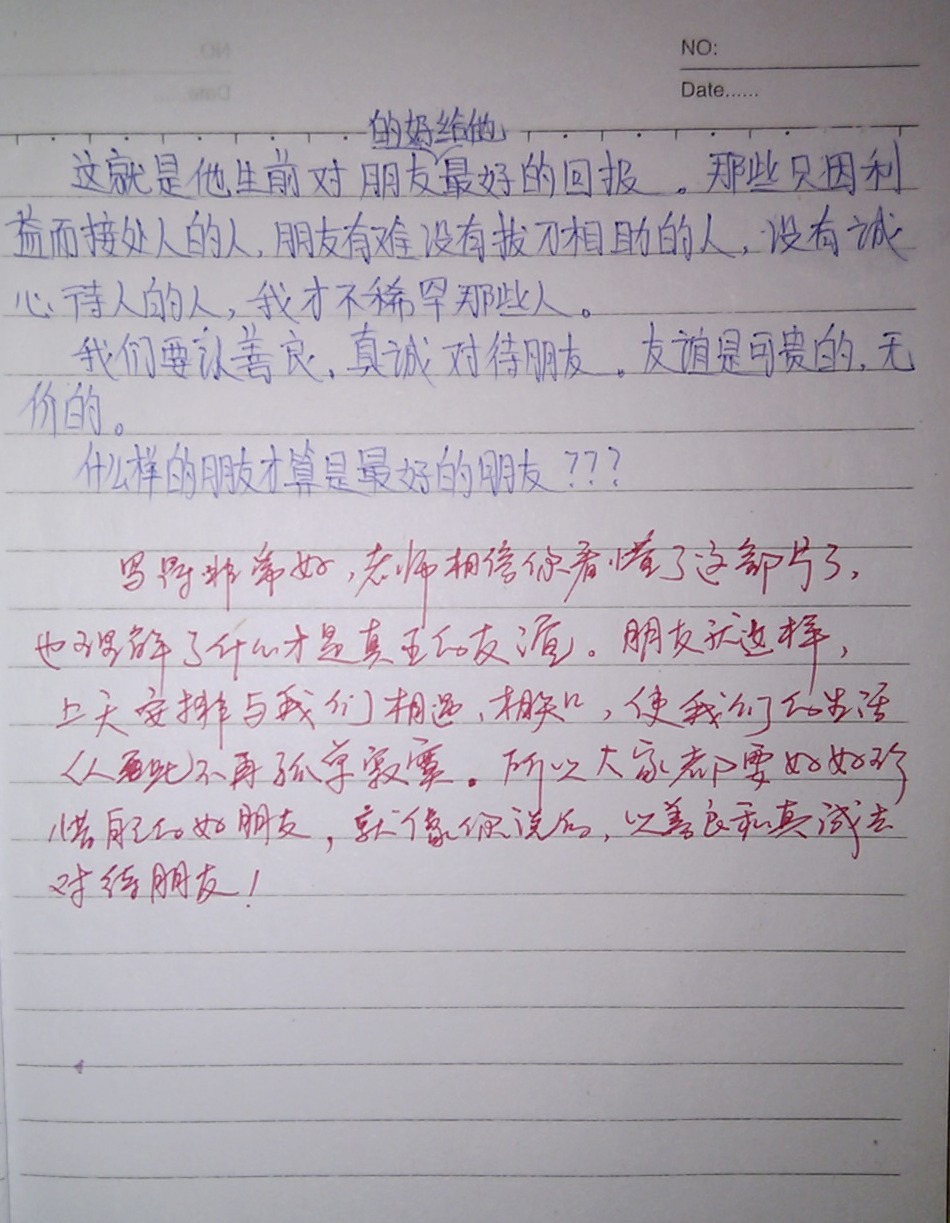 NO:
Date......
的好给他
这就是他生前对朋友最好的回报。那些只因利
益而接处人的人,朋友有难没有拔刀相助的人,没有诚
心待人的人,我才不稀罕那些人。
我们要以善良,真诚对待朋友。友谊是可贵的,无
价的。
什么样的朋友才算是最好的朋友???
写得非常好,老师相信你看懂了这部片了,
也理解了什么才是真正的友谊。朋友就这样,
上天安排与我们相遇、相知,使我们的生活
从此不再孤单寂寞。所以大家都要好好珍
惜自己的好朋友,就像你说的,以善良和真诚去
对待朋友!